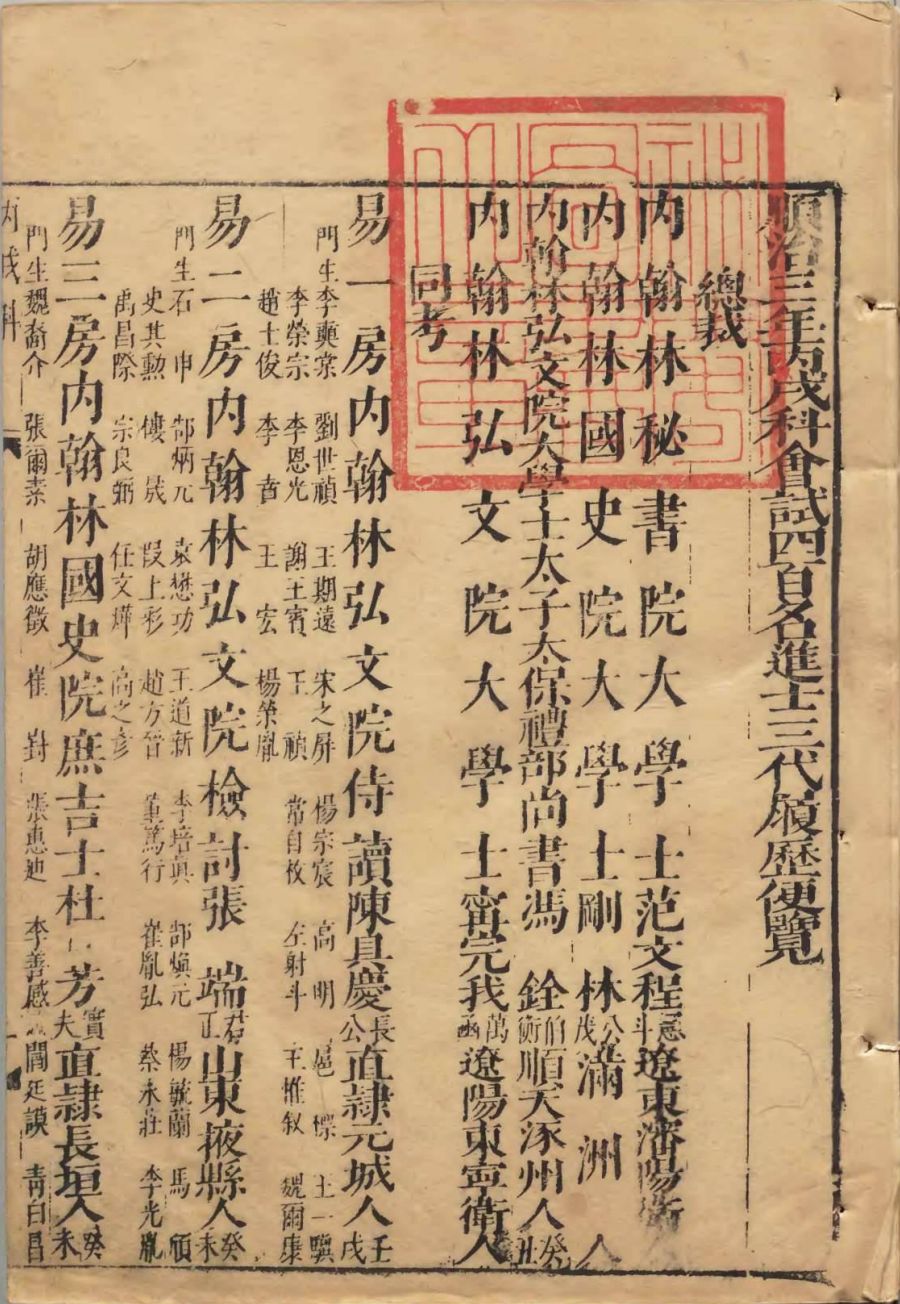 順治三年丙戌科會試四百名進士三代履歷便覽
總裁
內翰林秘書院大學士范文程冦斗遼東瀋陽衛人
內翰林國史院大學士剛林公茂滿洲人
內翰林弘文院大學士太子太保禮部尚書馮銓伯衡順天涿州人癸丑
內翰林弘文院大學士甯完我萬涵遼陽東寧衛人
同考
易一房內翰林弘文院侍讀陳具慶長公直隷元城人壬戌
門生李奭棠 劉世禎 王期遠 宋之屏 楊宗宸 高明 扈標 王一驥
李榮宗 李恩光 謝王賓 王禎 常自牧 左射斗 王惟叙 魏爾康
趙士俊 李杳 王宏 楊榮胤
易二房內翰林弘文院檢討張端君正山東掖縣人癸未
門生石申 郜炳元 袁懋功 王道新 李培真 郜煥元 楊毓蘭 馬頎
史其勳 傻晟 段上彩 趙方晉 董篤行 崔胤弘 蔡永莊 李光胤
禹昌際 宗良弼 任文燁 高之彥
易三房內翰林國史院庶吉士杜芳實夫直隷長垣人癸未
門生魏裔介 張爾素 胡應徵 崔對 張惠迪 李善感 閻廷謨 靑白昌
丙戌科